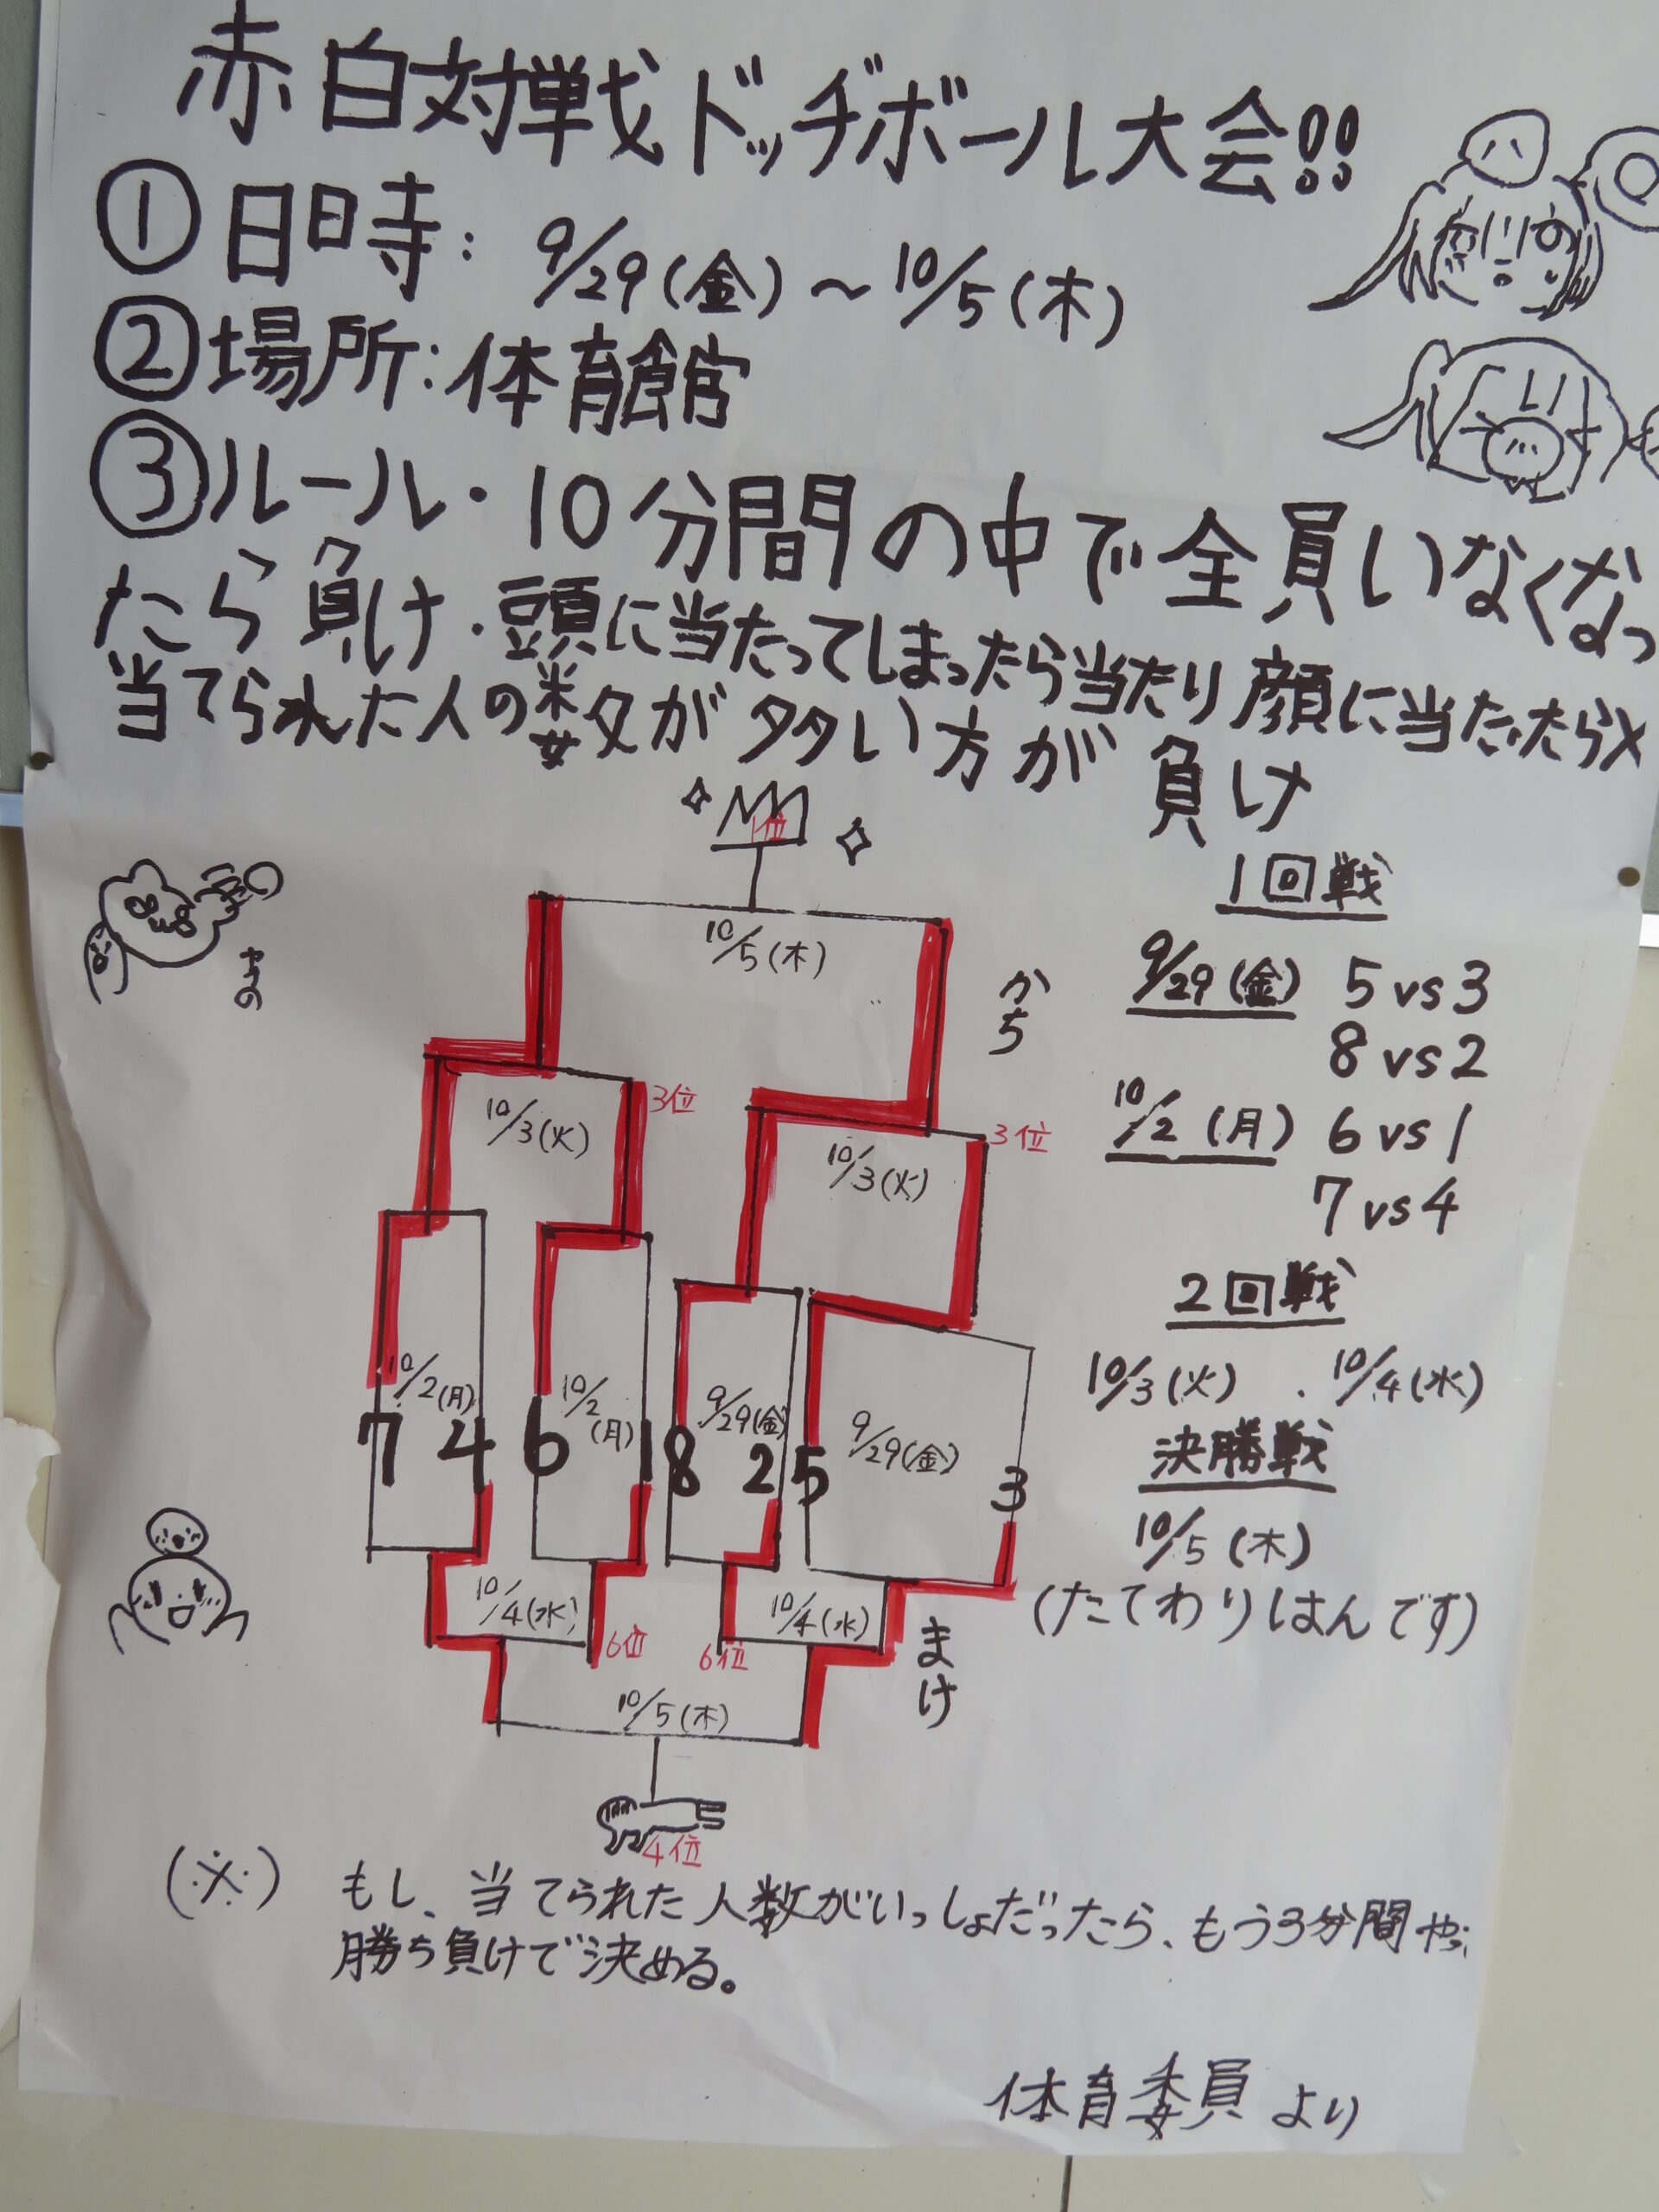 赤白対戦ドッヂボール大会!!
①日時: 9/29(金)～10/5(木)
②場所:体育館
③ルール・10分間の中で全員いなくなっ
たら負け・頭に当たってしまったら当たり顔に当たったら×
当てられた人の数が多い方が負け
1位
10/5(木)
かち
10/3(火)
3位
10/3(火)
3位
10/2(月)
10/2(月)
9/29(金)
9/29(金)
7 4 6 1 8 2 5 3
10/4(水)
6位
6位
10/4(水)
まけ
10/5(木)
4位
1回戦
9/29(金) 5vs3
8vs2
10/2(月) 6vs1
7vs4
2回戦
10/3(火) . 10/4(水)
決勝戦
10/5(木)
(たてわりはんです)
(※) もし、当てられた人数がいっしょだったら、もう3分間やっ
勝ち負けで決める。
体育委員より